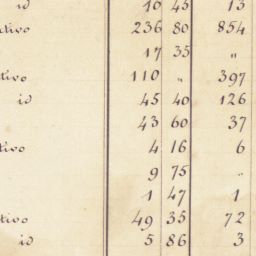 id 10 45 13
ctivo 236 80 854
17 35 "
tivo 110 " 397
id 45 40 126
43 60 37
tivo 4 16 6
9 75 "
1 47 1
tivo 49 35 72
id 5 86 3